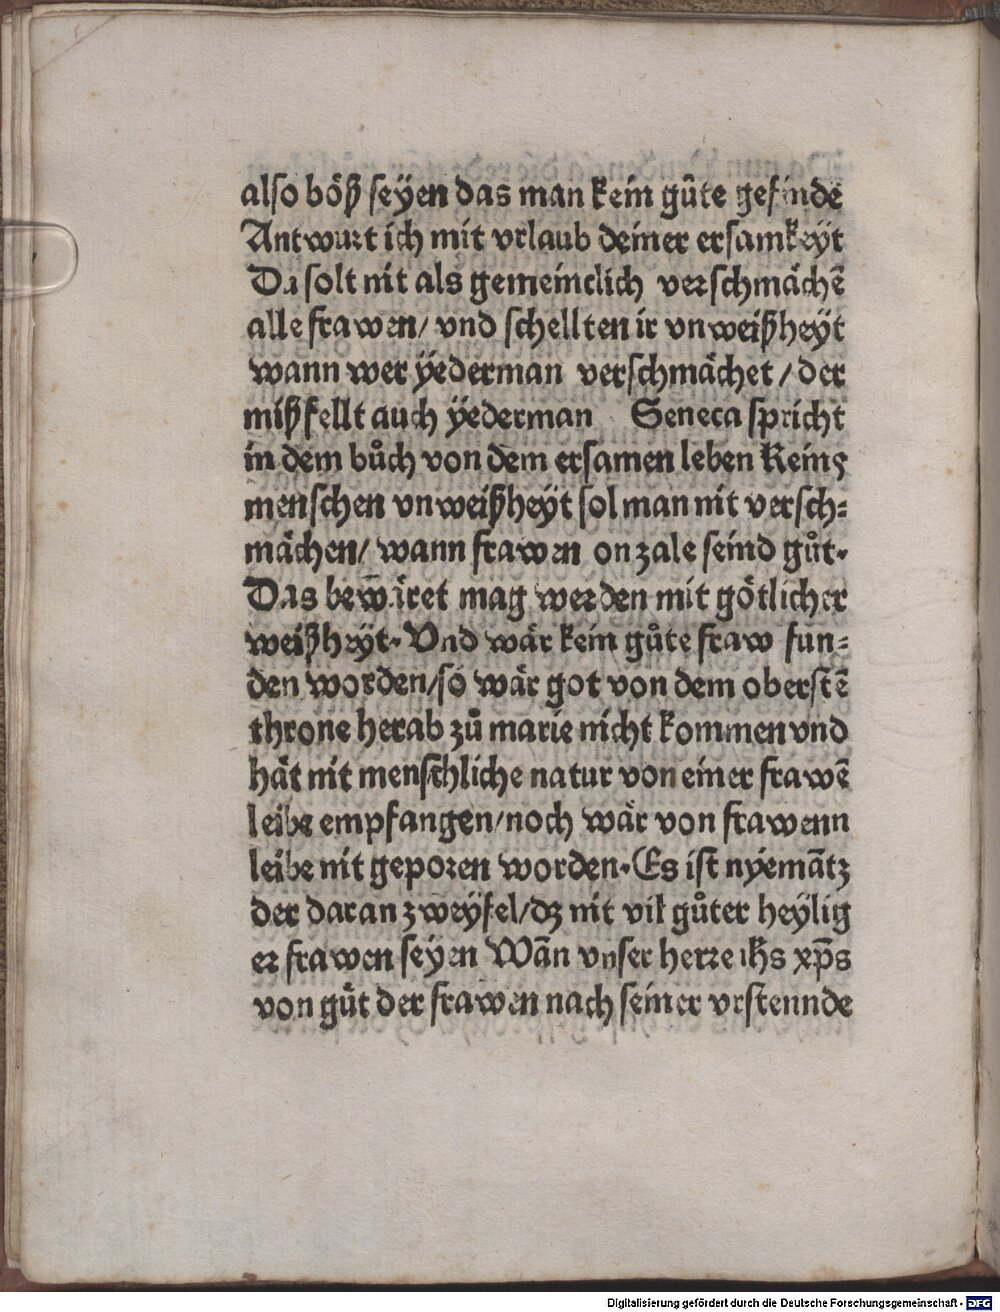 also böß seyen das man kein gůte gefinde
Antwurt ich mit vrlaub deiner ersamkeyt
Du solt nit als gemeinclich verschmächē
alle frawen/ vnd schellten ir vnweißheÿt
wann wer ÿederman verschmächet/ der
mißfellt auch ÿederman Seneca spricht
in dem bůch von dem ersamen leben Keins
menschen vnweißheÿt sol man nit versch⸗
mächen/ wann frawen on zale seind gůt.
Das bewäret mag werden mit götlicher
weißheÿt. Vnd wär kein gůte fraw fun⸗
den worden/ so wär got von dem oberstē
throne herab zů marie nicht kommen vnd
hät nit menschliche natur von einer frawē
leibe empfangen/ noch wär von frawenn
leibe nit geporen worden. Es ist nyemātz
der daran zweÿfel/ dz nit vil gůter heÿlig
er frawen seyen Wān vnser herre ihs xp̄s
von gůt der frawen nach seiner vrstennde
Digitalisierung gefördert durch die Deutsche Forschungsgemeinschaft - DFG